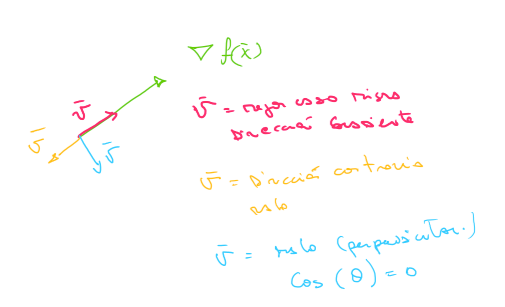 ∇ f(x̄)
v̄
v̄ = mejor caso mismo
dirección gradiente
v̄
v̄
v̄ = dirección contraria
malo
v̄ = malo (perpendicular.)
Cos (θ) = 0